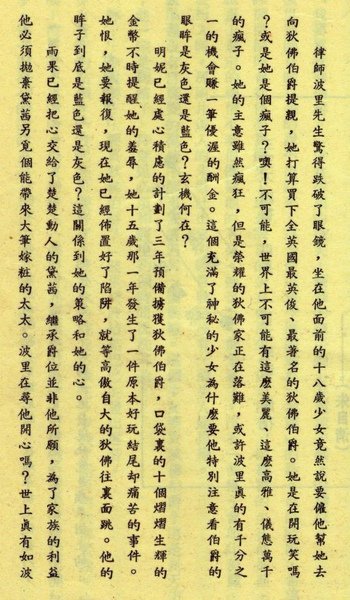 律師波里先生驚得跌破了眼鏡，坐在他面前的十八歲少女竟然說要僱他幫她去
向狄佛伯爵提親，她打算買下全英國最英俊、最著名的狄佛伯爵。她是在開玩笑嗎
？或是她是個瘋子？噢！不可能，世界上不可能有這麼美麗、這麼高雅、儀態萬千
的瘋子。她的主意雖然瘋狂，但是榮耀的狄佛家正在落難，或許波里真的有千分之
一的機會賺一筆優渥的酬金。這個充滿了神秘的少女為什麼要他特別注意看伯爵的
眼眸是灰色還是藍色？玄機何在？
明妮已經處心積慮的計劃了三年預備擄獲狄佛伯爵，口袋裏的十個熠熠生輝的
金幣不時提醒她的羞辱，她十五歲那一年發生了一件原本好玩結尾却痛苦的事件。
她恨，她要報復，現在她已經佈置好了陷阱，就等高傲自大的狄佛往裏面跳。他的
眸子到底是藍色還是灰色？這關係到她的策略和她的心。
雨果已經把心交給了楚楚動人的黛茜，繼承爵位並非他所願，為了家族的利益
他必須拋棄黛茜另覓個能帶來大筆嫁粧的太太。波里在尋他開心嗎？世上真有如波